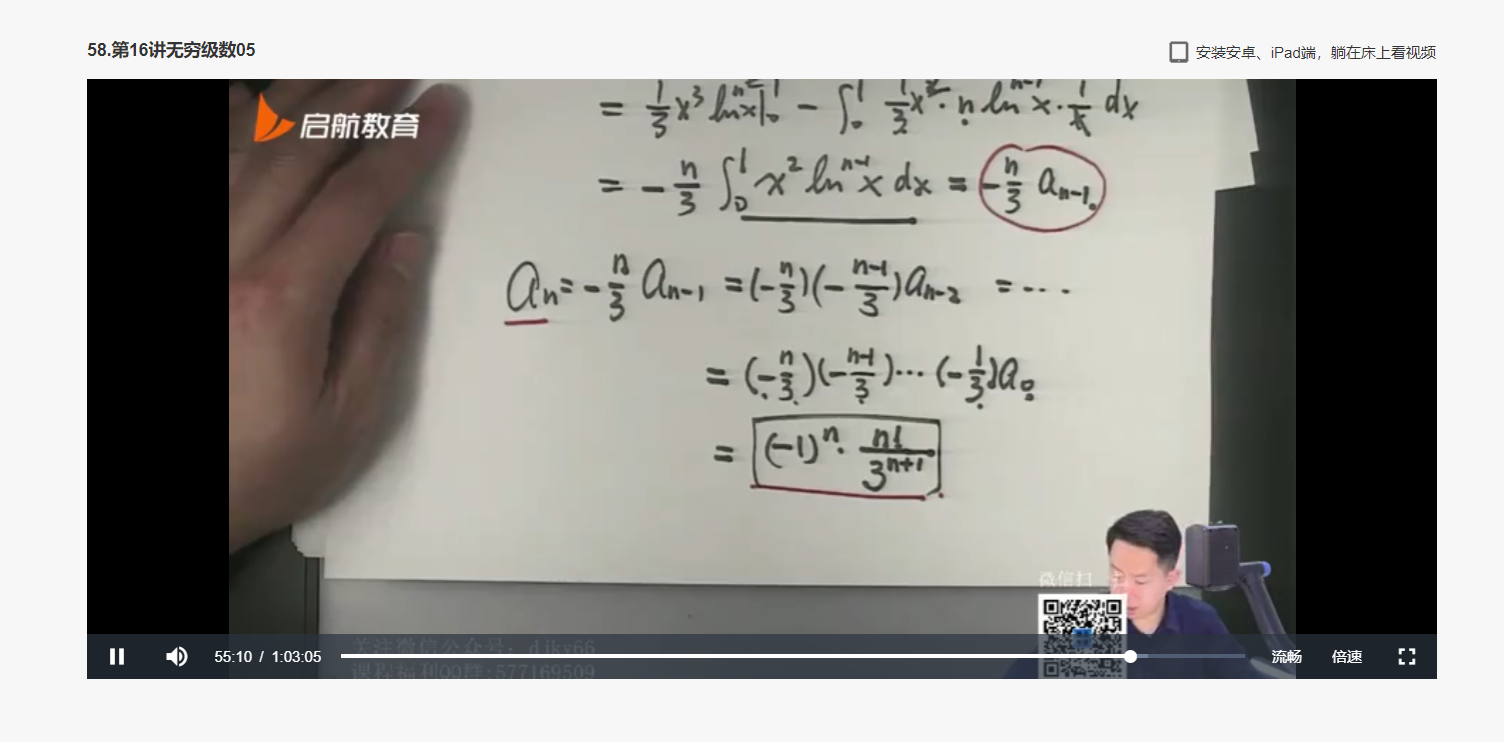 58.第16讲无穷级数05
安装安卓、iPad端，躺在床上看视频
启航教育
= 1/3 x³ lnⁿx |₀¹ - ∫₀¹ 1/3 x³ · n lnⁿ⁻¹x · 1/x dx
= - n/3 ∫₀¹ x² lnⁿ⁻¹x dx = - n/3 aₙ₋₁.
aₙ = - n/3 aₙ₋₁ = (- n/3)(- n-1/3)aₙ₋₂ = ...
= (- n/3)(- n-1/3)···(- 1/3)a₀
= (-1)ⁿ · n!/3ⁿ⁺¹
微信扫
关注微信公众号：djky66
课程福利QQ群:577169509
55:10 / 1:03:05
流畅
倍速